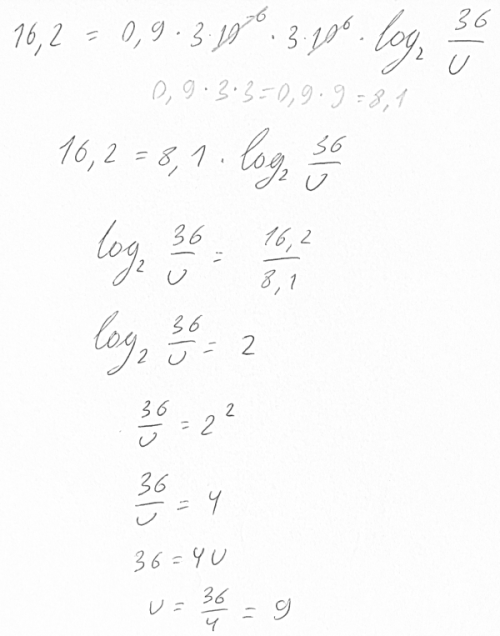 16,2 = 0,9 · 3 · 10⁻⁶ · 3 · 10⁶ · log₂ 36/U
0,9 · 3 · 3 = 0,9 · 9 = 8,1
16,2 = 8,1 · log₂ 36/U
log₂ 36/U = 16,2/8,1
log₂ 36/U = 2
36/U = 2²
36/U = 4
36 = 4U
U = 36/4 = 9